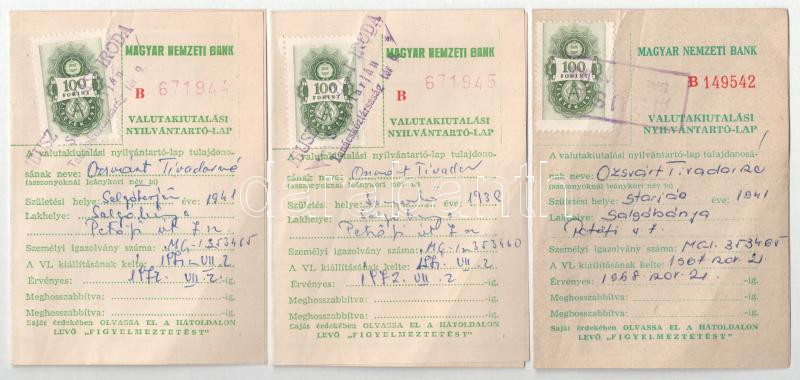 MAGYAR NEMZETI BANK
100
FORINT
B 671944
VALUTAKIUTALÁSI
NYILVÁNTARTÓ-LAP
A valutakiutalási nyilvántartó-lap tulajdono-
sának neve: Ozsvárt Tivadarné
(asszonyoknál leánykori név is)
Születési helye: éve: 1941
Lakhelye: Salgóbánya
Petőfi út 7.
Személyi igazolvány száma: MG-I 353465
A VL kiállításának kelte: 1971. VII. 2.
Érvényes: 1972. VII. 2 -ig.
Meghosszabbítva: -ig.
-ig.
Saját érdekében OLVASSA EL A HÁTOLDALON
LEVŐ „FIGYELMEZTETÉST"
MAGYAR NEMZETI BANK
100
FORINT
B 671945
VALUTAKIUTALÁSI
NYILVÁNTARTÓ-LAP
A valutakiutalási nyilvántartó-lap tulajdono-
sának neve: Ozsvárt Tivadar
(asszonyoknál leánykori név is)
Születési helye: éve: 1938
Lakhelye: Salgóbánya
Petőfi út 7.
Személyi igazolvány száma: MG-I 353460
A VL kiállításának kelte: 1971. VII. 2.
Érvényes: 1972. VII. 2 -ig.
Meghosszabbítva: -ig.
-ig.
Saját érdekében OLVASSA EL A HÁTOLDALON
LEVŐ „FIGYELMEZTETÉST"
MAGYAR NEMZETI BANK
100
FORINT
B 149542
VALUTAKIUTALÁSI
NYILVÁNTARTÓ-LAP
A valutakiutalási nyilvántartó-lap tulajdono-
sának neve: Ozsvárt Tivadarné
(asszonyoknál leánykori név is)
Születési helye: éve: 1941
Lakhelye: Salgóbánya
Petőfi u 7.
Személyi igazolvány száma: MG-I. 353465
A VL kiállításának kelte: 1967 nov. 21.
Érvényes: 1968 nov. 21. -ig.
Meghosszabbítva: -ig.
-ig.
Saját érdekében OLVASSA EL A HÁTOLDALON
LEVŐ „FIGYELMEZTETÉST"